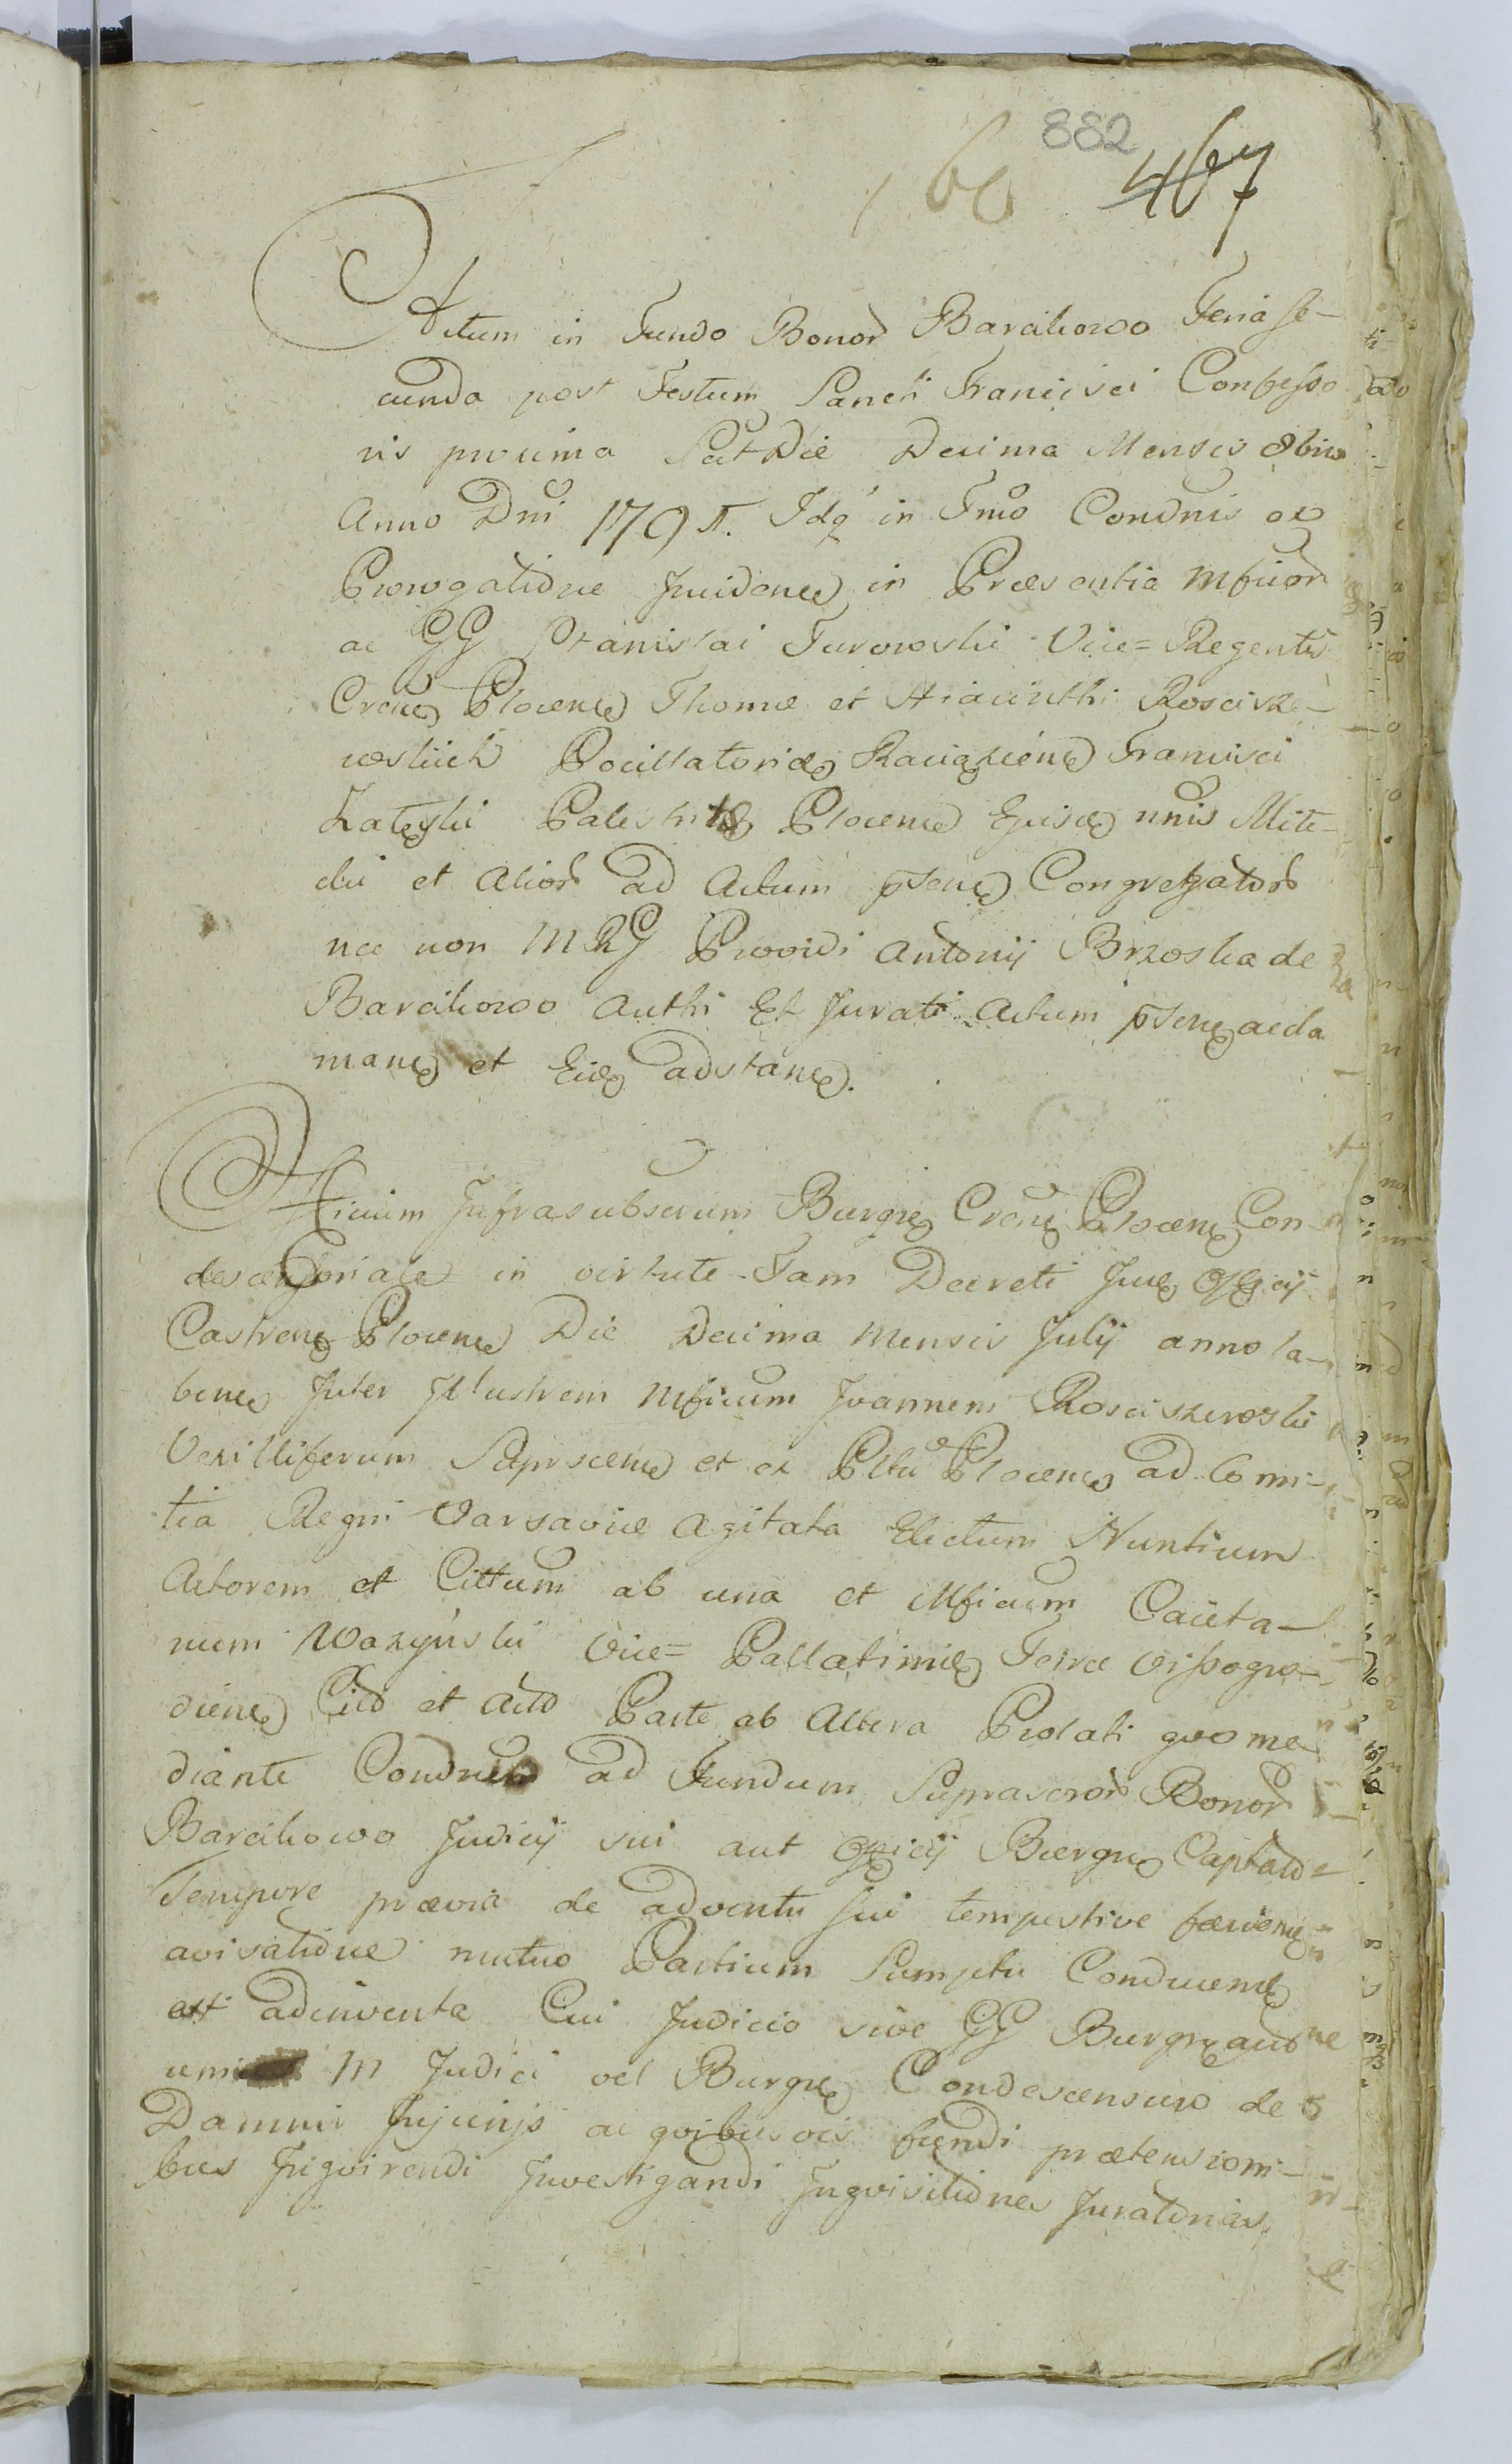 882
160 467
Actum in Fundo Bonor Barcikowo Feria se-
cunda post Festum Sancti Francisci Confesso
ris proxima Seu Die Decima Mensis 8bris
Anno Dni 1791. Idq in Tmo Condnis ex
Prorogatione Inciden in Præsentia Mficor
ac GG Stanislai Turowski Vice=Regentis
Crens Plocens Thomæ et Hiacinthi Roscisze-
wskich Pocillatorid Raciążiens Francisci
Zateski Palestræ Plocens Ejusd nnis Mite-
cki et Alior ad Actum psens Congregator
nec non MRG Providi Antonij Brzoska de
Barcikowo Authi Et Jurati Actum psens acela
mans et Eid adstans.
Officium Infrasubscrium Burgis Crens Plocens Con-
descensoriale in virtute Tam Decreti Juds Officij
Castrens Plocens Die Decima Mensis Julij anno la-
bens Inter Illustrem Mficum Joannem Rosciszewski
Vexilliferum Suprascens et ex Pltu Plocens ad Comi-
tia Regni Varsaviæ Agitata Electum Nuntium
Actorem et Cittum ab una et Mficum Caieta-
num Wazyński Vice=Pallatinus Terræ Wyssogro-
diens Citto et Acto Parte ab Altera Prolati quo me
diante ad Fundum Suprascror Bonor
Barcikowo Judicij sui aut Officij Burgis Captato
Tempore prævia de adventu sui tempestive faciens
avisatione mutuo Partium Sumptu Conducens
est adinventa Cui Judicio sive GG Burg
M Judici vel Burgis Condescensuro de
Damnis Injurijs ac quibusvis fundi prætensioni-
bus Inquirendi Investigandi Inquisitiones Juratorias